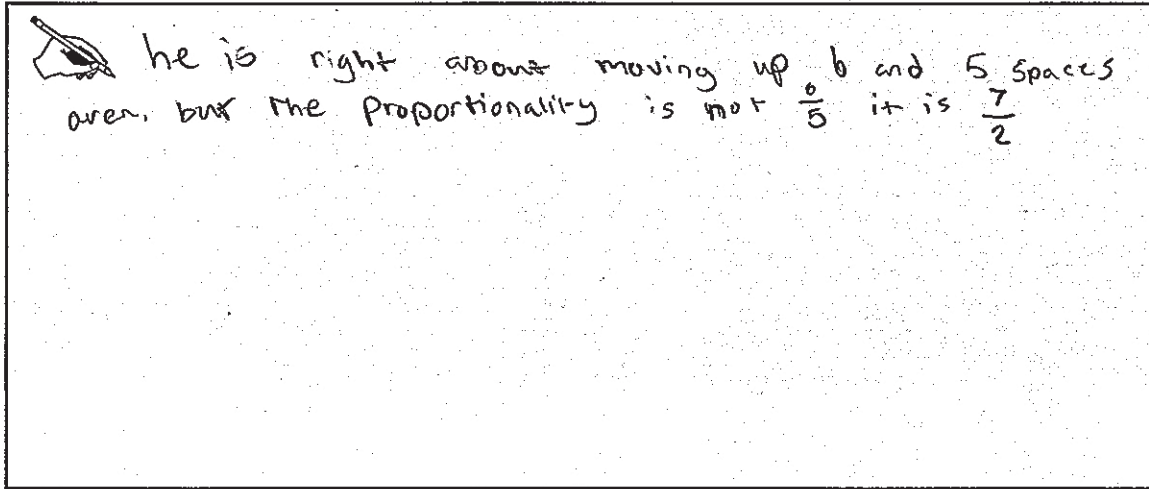 he is right about moving up 6 and 5 spaces
over, but the proportionality is not 6/5 it is 7/2